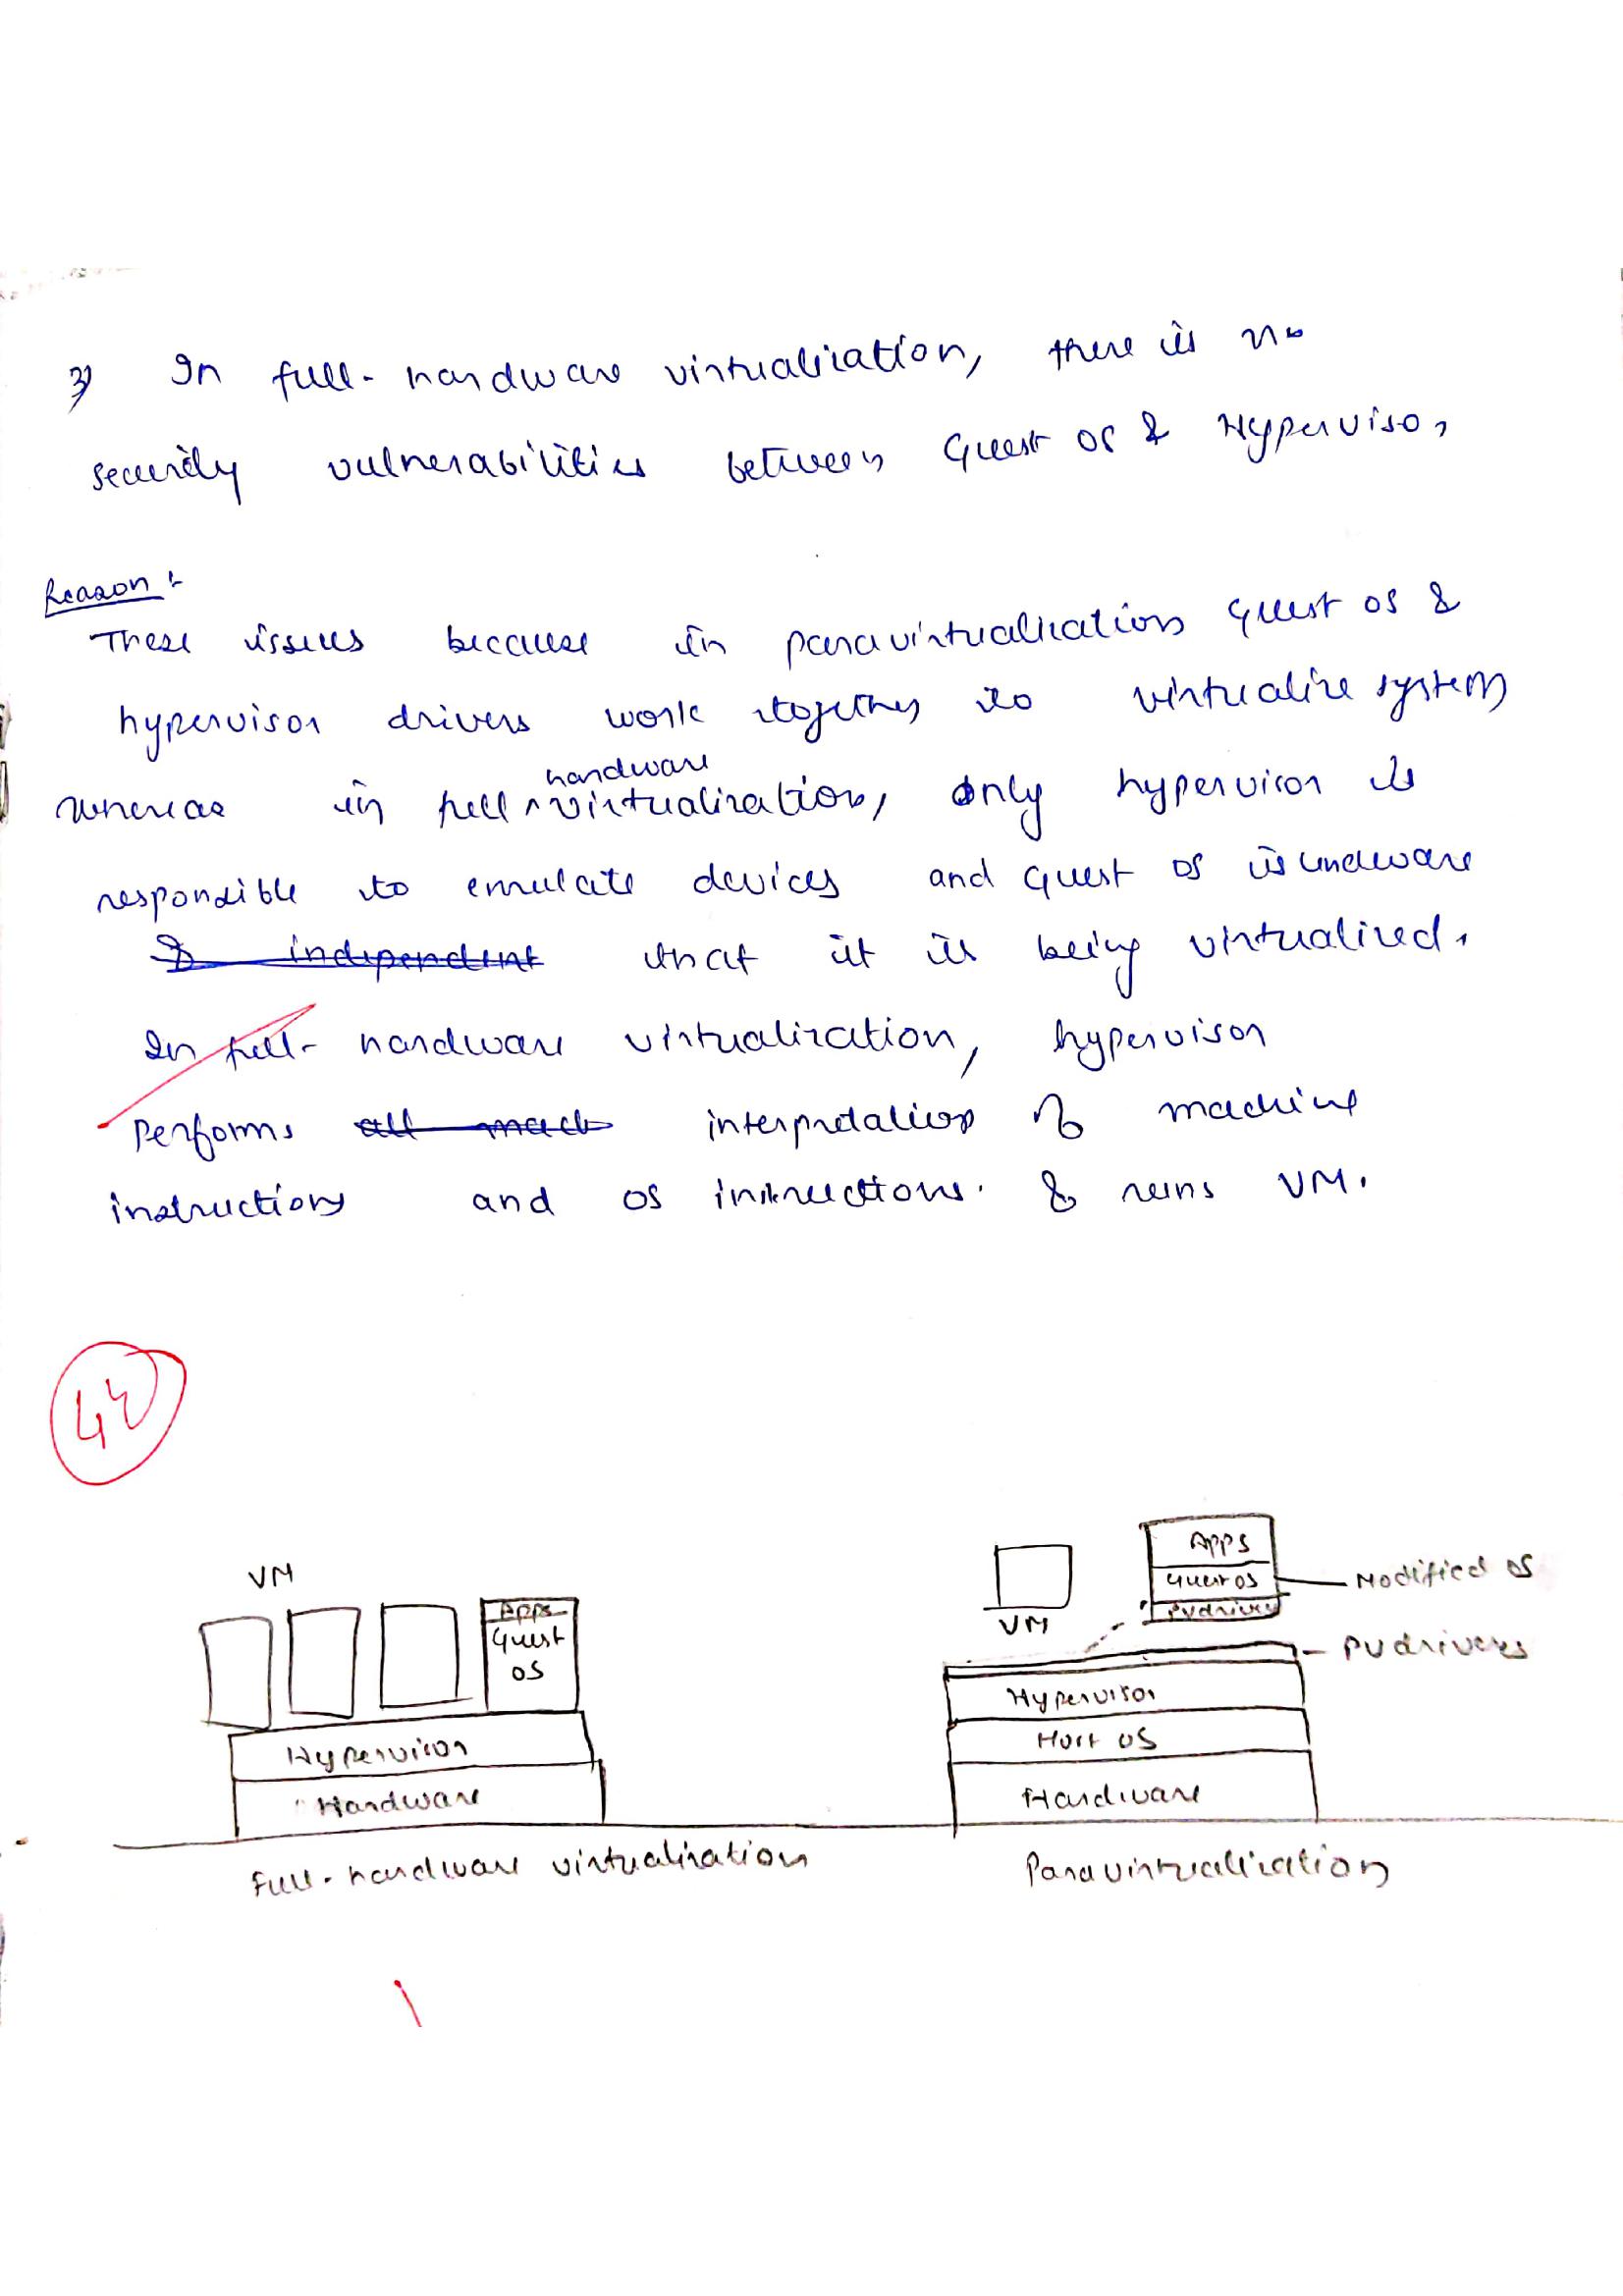 3) In full-hardware virtualization, there is no
security vulnerabilities between Guest OS & Hypervisor
Reason :-
These issues because in paravirtualization guest os &
hypervisor drivers work together to virtualize system
hardware
whereas in full ^ virtualization, only hypervisor is
responsible to emulate devices and guest os is unaware
& independent that it is being virtualized.
In full-hardware virtualization, hypervisor
Performs all mach interpretation of machine
instructions and OS instructions. & runs VM.
VM
Apps
Guest
OS
Hypervisor
Hardware
Full-hardware virtualization
VM
Apps
Guest OS
PV drivers
Modified OS
PV drivers
Hypervisor
Host OS
Hardware
Paravirtualization